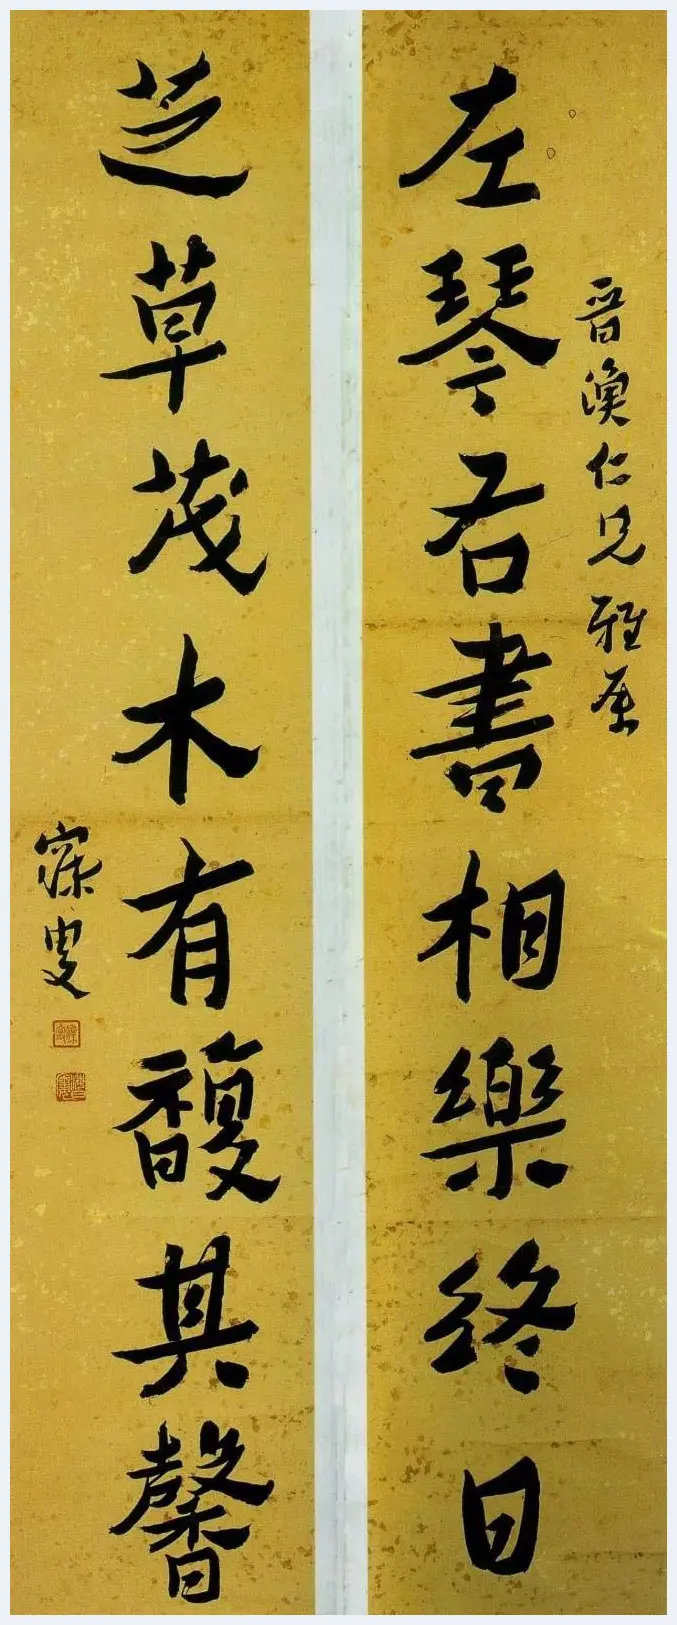 晋漁仁兄雅属
左琴右書相樂終日
芝草茂木有馥其馨
寐叟